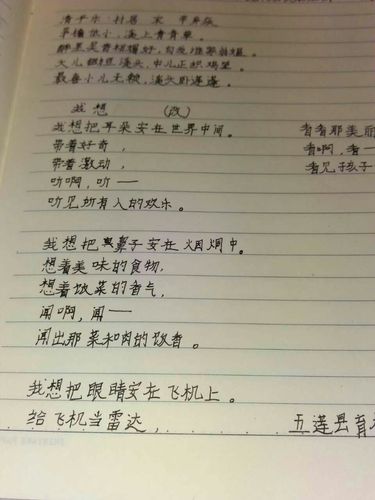 清平乐 村居 宋 辛弃疾
茅檐低小,溪上青青草。
醉里吴音相媚好,白发谁家翁媪。
大儿锄豆溪头,中儿正织鸡笼。
最喜小儿无赖,溪头卧莲蓬。
我想 (改)
我想把耳朵安在世界中间。 看看那美丽
带着好奇, 看啊,看一
带着激动, 看见孩子
听啊,听一
听见所有人的欢乐。
我想把鼻子安在烟囱中。
想着美味的食物,
想着饭菜的香气,
闻啊,闻一
闻出那菜和肉的饭香。
我想把眼睛安在飞机上。
给飞机当雷达, 五莲县育